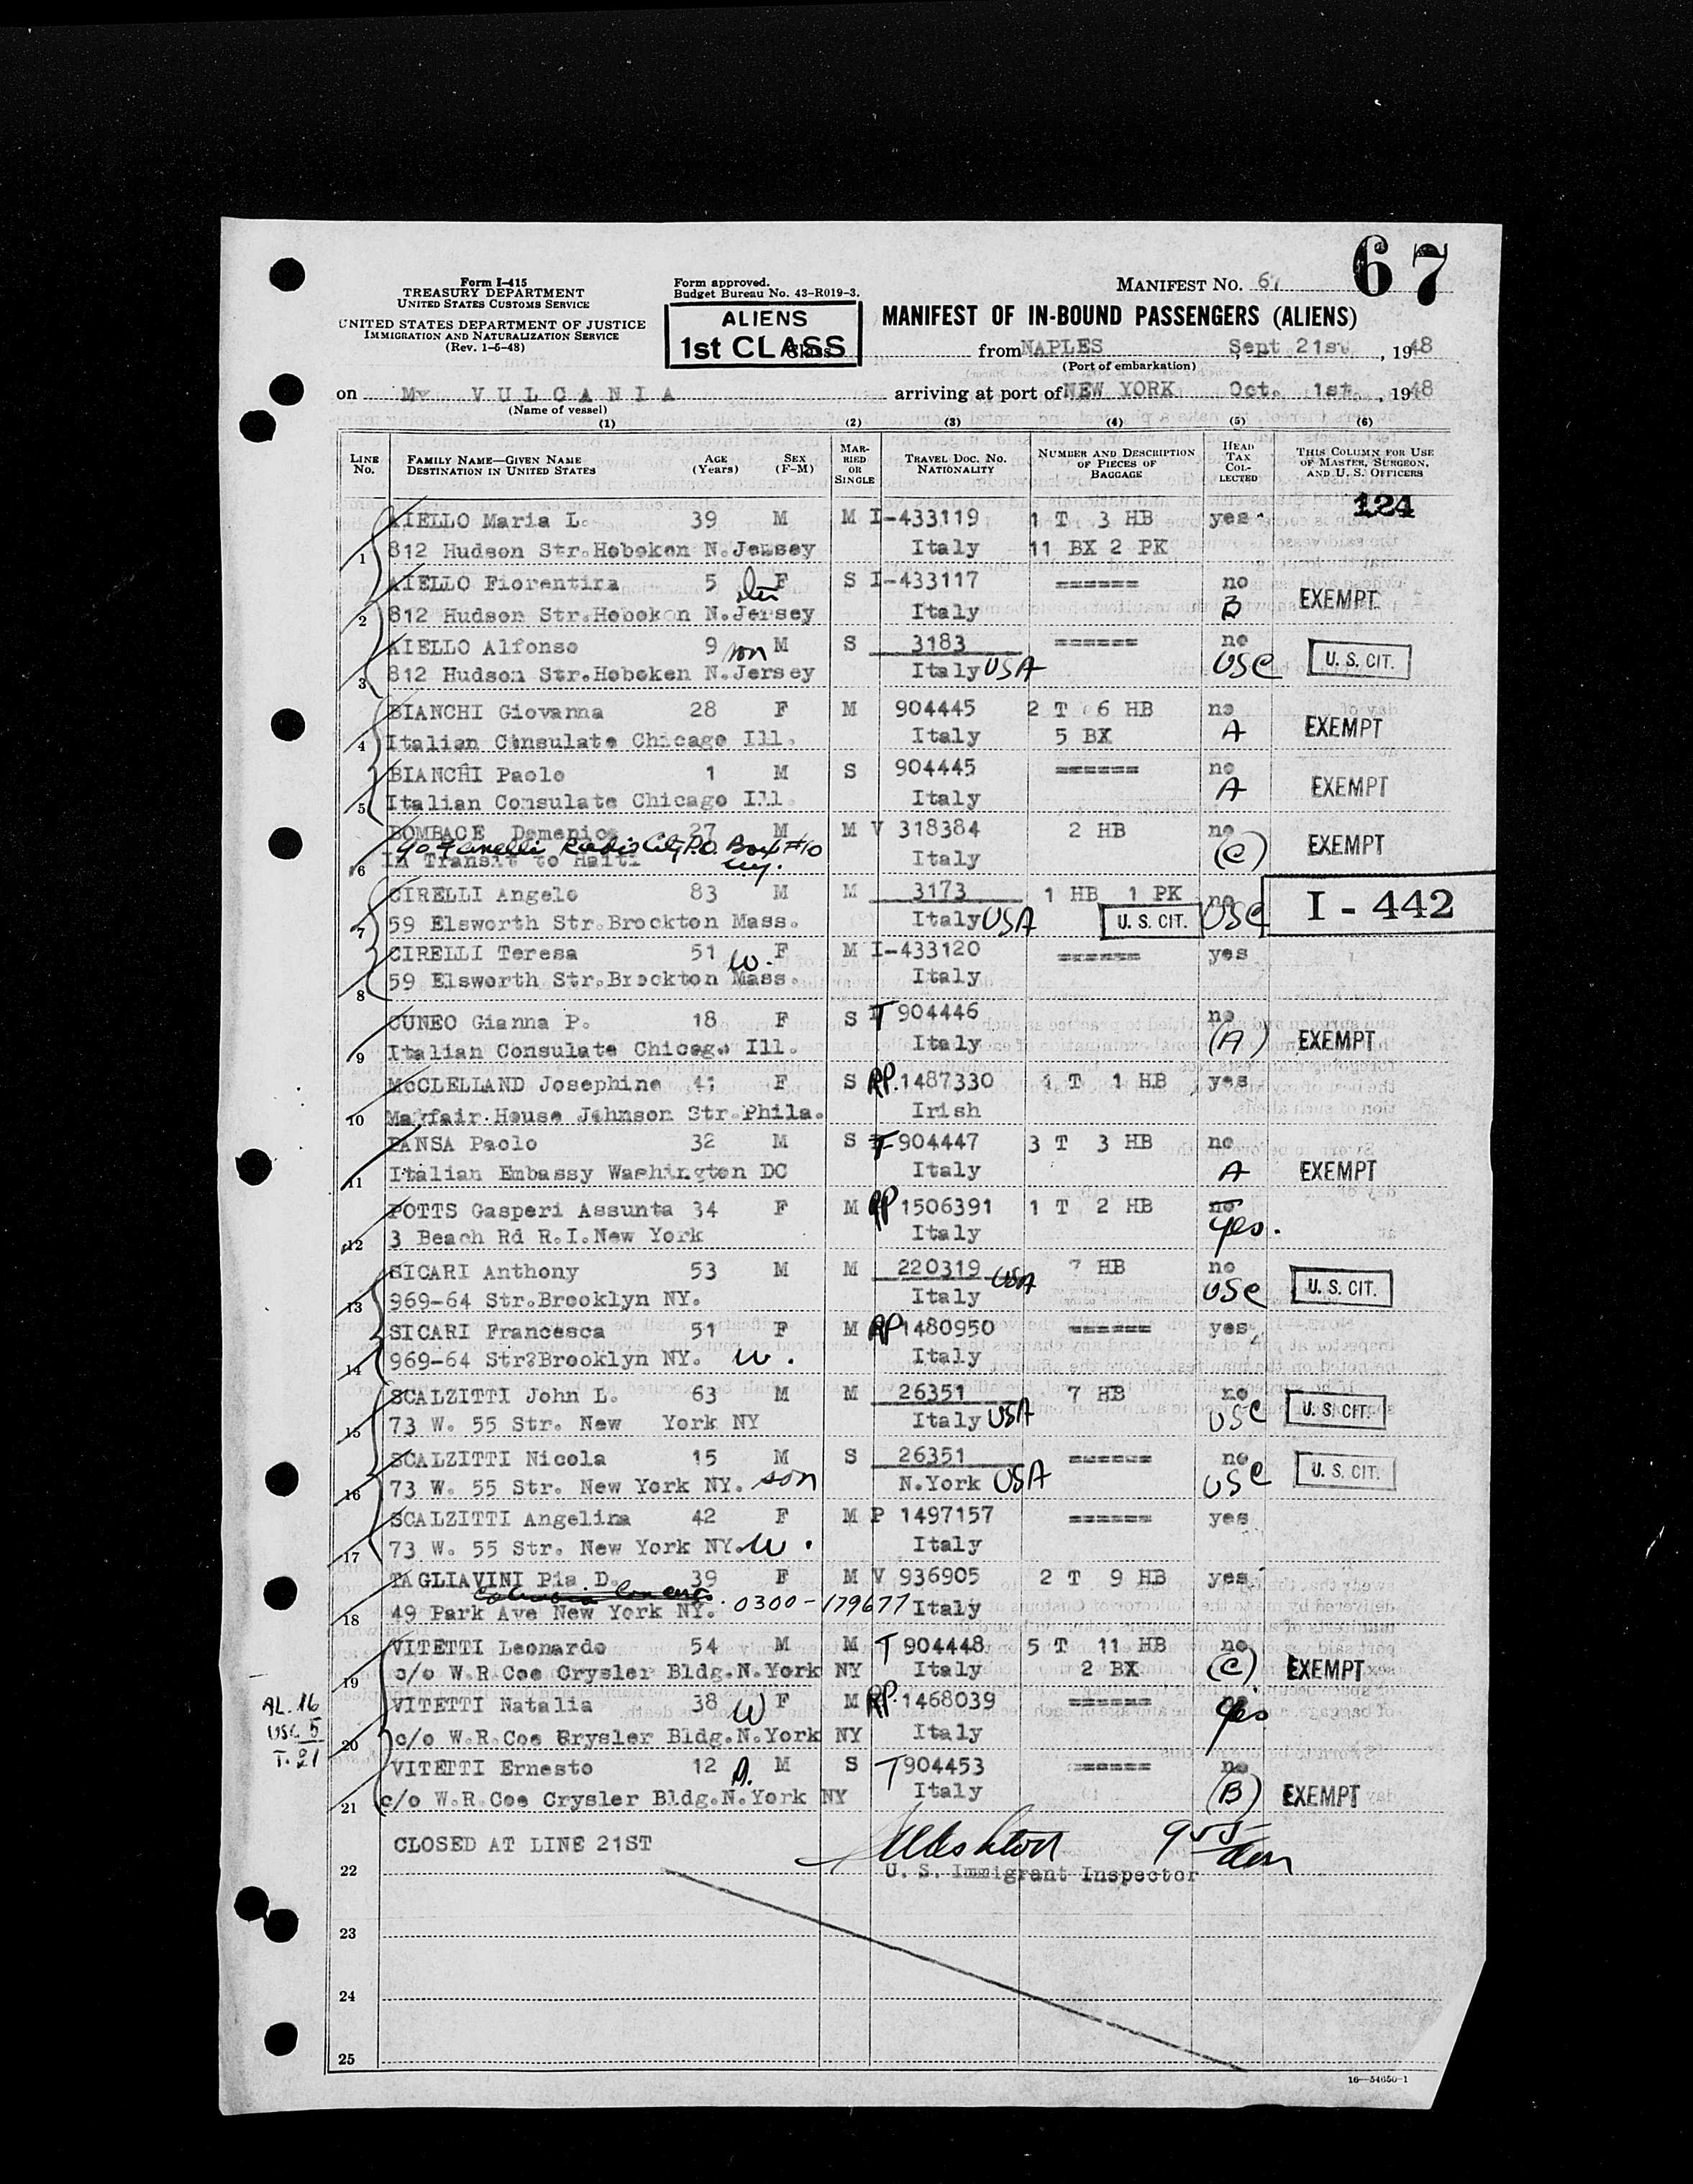 67
Form I-415
TREASURY DEPARTMENT
UNITED STATES CUSTOMS SERVICE
UNITED STATES DEPARTMENT OF JUSTICE
IMMIGRATION AND NATURALIZATION SERVICE
(Rev. 1-5-48)
Form approved.
Budget Bureau No. 43-R019-3.
MANIFEST NO. 67
ALIENS
1st CLASS
MANIFEST OF IN-BOUND PASSENGERS (ALIENS)
Class from NAPLES Sept 21st, 1948
(Port of embarkation)
on Mv VULCANIA arriving at port of NEW YORK Oct. 1st, 1948
(Name of vessel)
(1) (2) (3) (4) (5) (6)
LINE No. FAMILY NAME—GIVEN NAME DESTINATION IN UNITED STATES AGE (Years) SEX (F-M) MARRIED OR SINGLE TRAVEL DOC. NO. NATIONALITY NUMBER AND DESCRIPTION OF PIECES OF BAGGAGE HEAD TAX COLLECTED THIS COLUMN FOR USE OF MASTER, SURGEON, AND U. S. OFFICERS
124
AIELLO Maria L. 39 M M I-433119 1 T 3 HB yes
1 812 Hudson Str.Hoboken N.Jersey Italy 11 BX 2 PK
AIELLO Fiorentina 5 F S I-433117 ====== no
2 812 Hudson Str.Hoboken N.Jersey Italy B EXEMPT
AIELLO Alfonso 9 son M S 3183 ====== no
3 812 Hudson Str.Hoboken N.Jersey Italy USA USC U. S. CIT.
BIANCHI Giovanna 28 F M 904445 2 T 6 HB no
4 Italian Consulate Chicago Ill. Italy 5 BX A EXEMPT
BIANCHI Paolo 1 M S 904445 ====== no
5 Italian Consulate Chicago Ill. Italy A EXEMPT
BOMBACE Domenico 27 M M V 318384 2 HB no
Radio City P.O. Box #10
N.Y.
6 In Transit to Haiti Italy (C) EXEMPT
CIRELLI Angelo 83 M M 3173 1 HB 1 PK no
7 59 Elsworth Str.Brockton Mass. Italy USA U. S. CIT. USC I - 442
CIRELLI Teresa 51 W. F M I-433120 ====== yes
8 59 Elsworth Str.Brockton Mass. Italy
CUNEO Gianna P. 18 F S T 904446 no
9 Italian Consulate Chicago Ill. Italy (A) EXEMPT
McCLELLAND Josephine 41 F S RP. 1487330 1 T 1 HB yes
10 Mayfair House Johnson Str.Phila. Irish
PANSA Paolo 32 M S T 904447 3 T 3 HB no
11 Italian Embassy Washington DC Italy A EXEMPT
POTTS Gasperi Assunta 34 F M RP 1506391 1 T 2 HB no
12 3 Beach Rd R.I.New York Italy yes.
SICARI Anthony 53 M M 220319 USA 7 HB no
13 969-64 Str.Brooklyn NY. Italy USC U. S. CIT.
SICARI Francesca 51 F M RP 1480950 ====== yes
14 969-64 Str?Brooklyn NY. W. Italy
SCALZITTI John L. 63 M M 26351 7 HB no
15 73 W. 55 Str. New York NY Italy USA USC U. S. CIT.
SCALZITTI Nicola 15 M S 26351 ====== no
16 73 W. 55 Str. New York NY. son N.York USA USC U. S. CIT.
SCALZITTI Angelina 42 F M P 1497157 ====== yes
17 73 W. 55 Str. New York NY. W. Italy
TAGLIAVINI Pia D. 39 F M V 936905 2 T 9 HB yes
18 49 Park Ave New York NY. 0300-179677 Italy
VITETTI Leonardo 54 M M T 904448 5 T 11 HB no
19 c/o W.R.Coe Crysler Bldg.N.York NY Italy 2 BX (C) EXEMPT
VITETTI Natalia 38 W F M RP. 1468039 ====== yes
20 c/o W.R.Coe Crysler Bldg.N.York NY Italy
AL. 16
USC. 5
T. 21
VITETTI Ernesto 12 M S T 904453 ====== no
21 c/o W.R.Coe Crysler Bldg.N.York NY Italy (B) EXEMPT
CLOSED AT LINE 21ST
22 U. S. Immigrant Inspector
23
24
25
16—54650-1